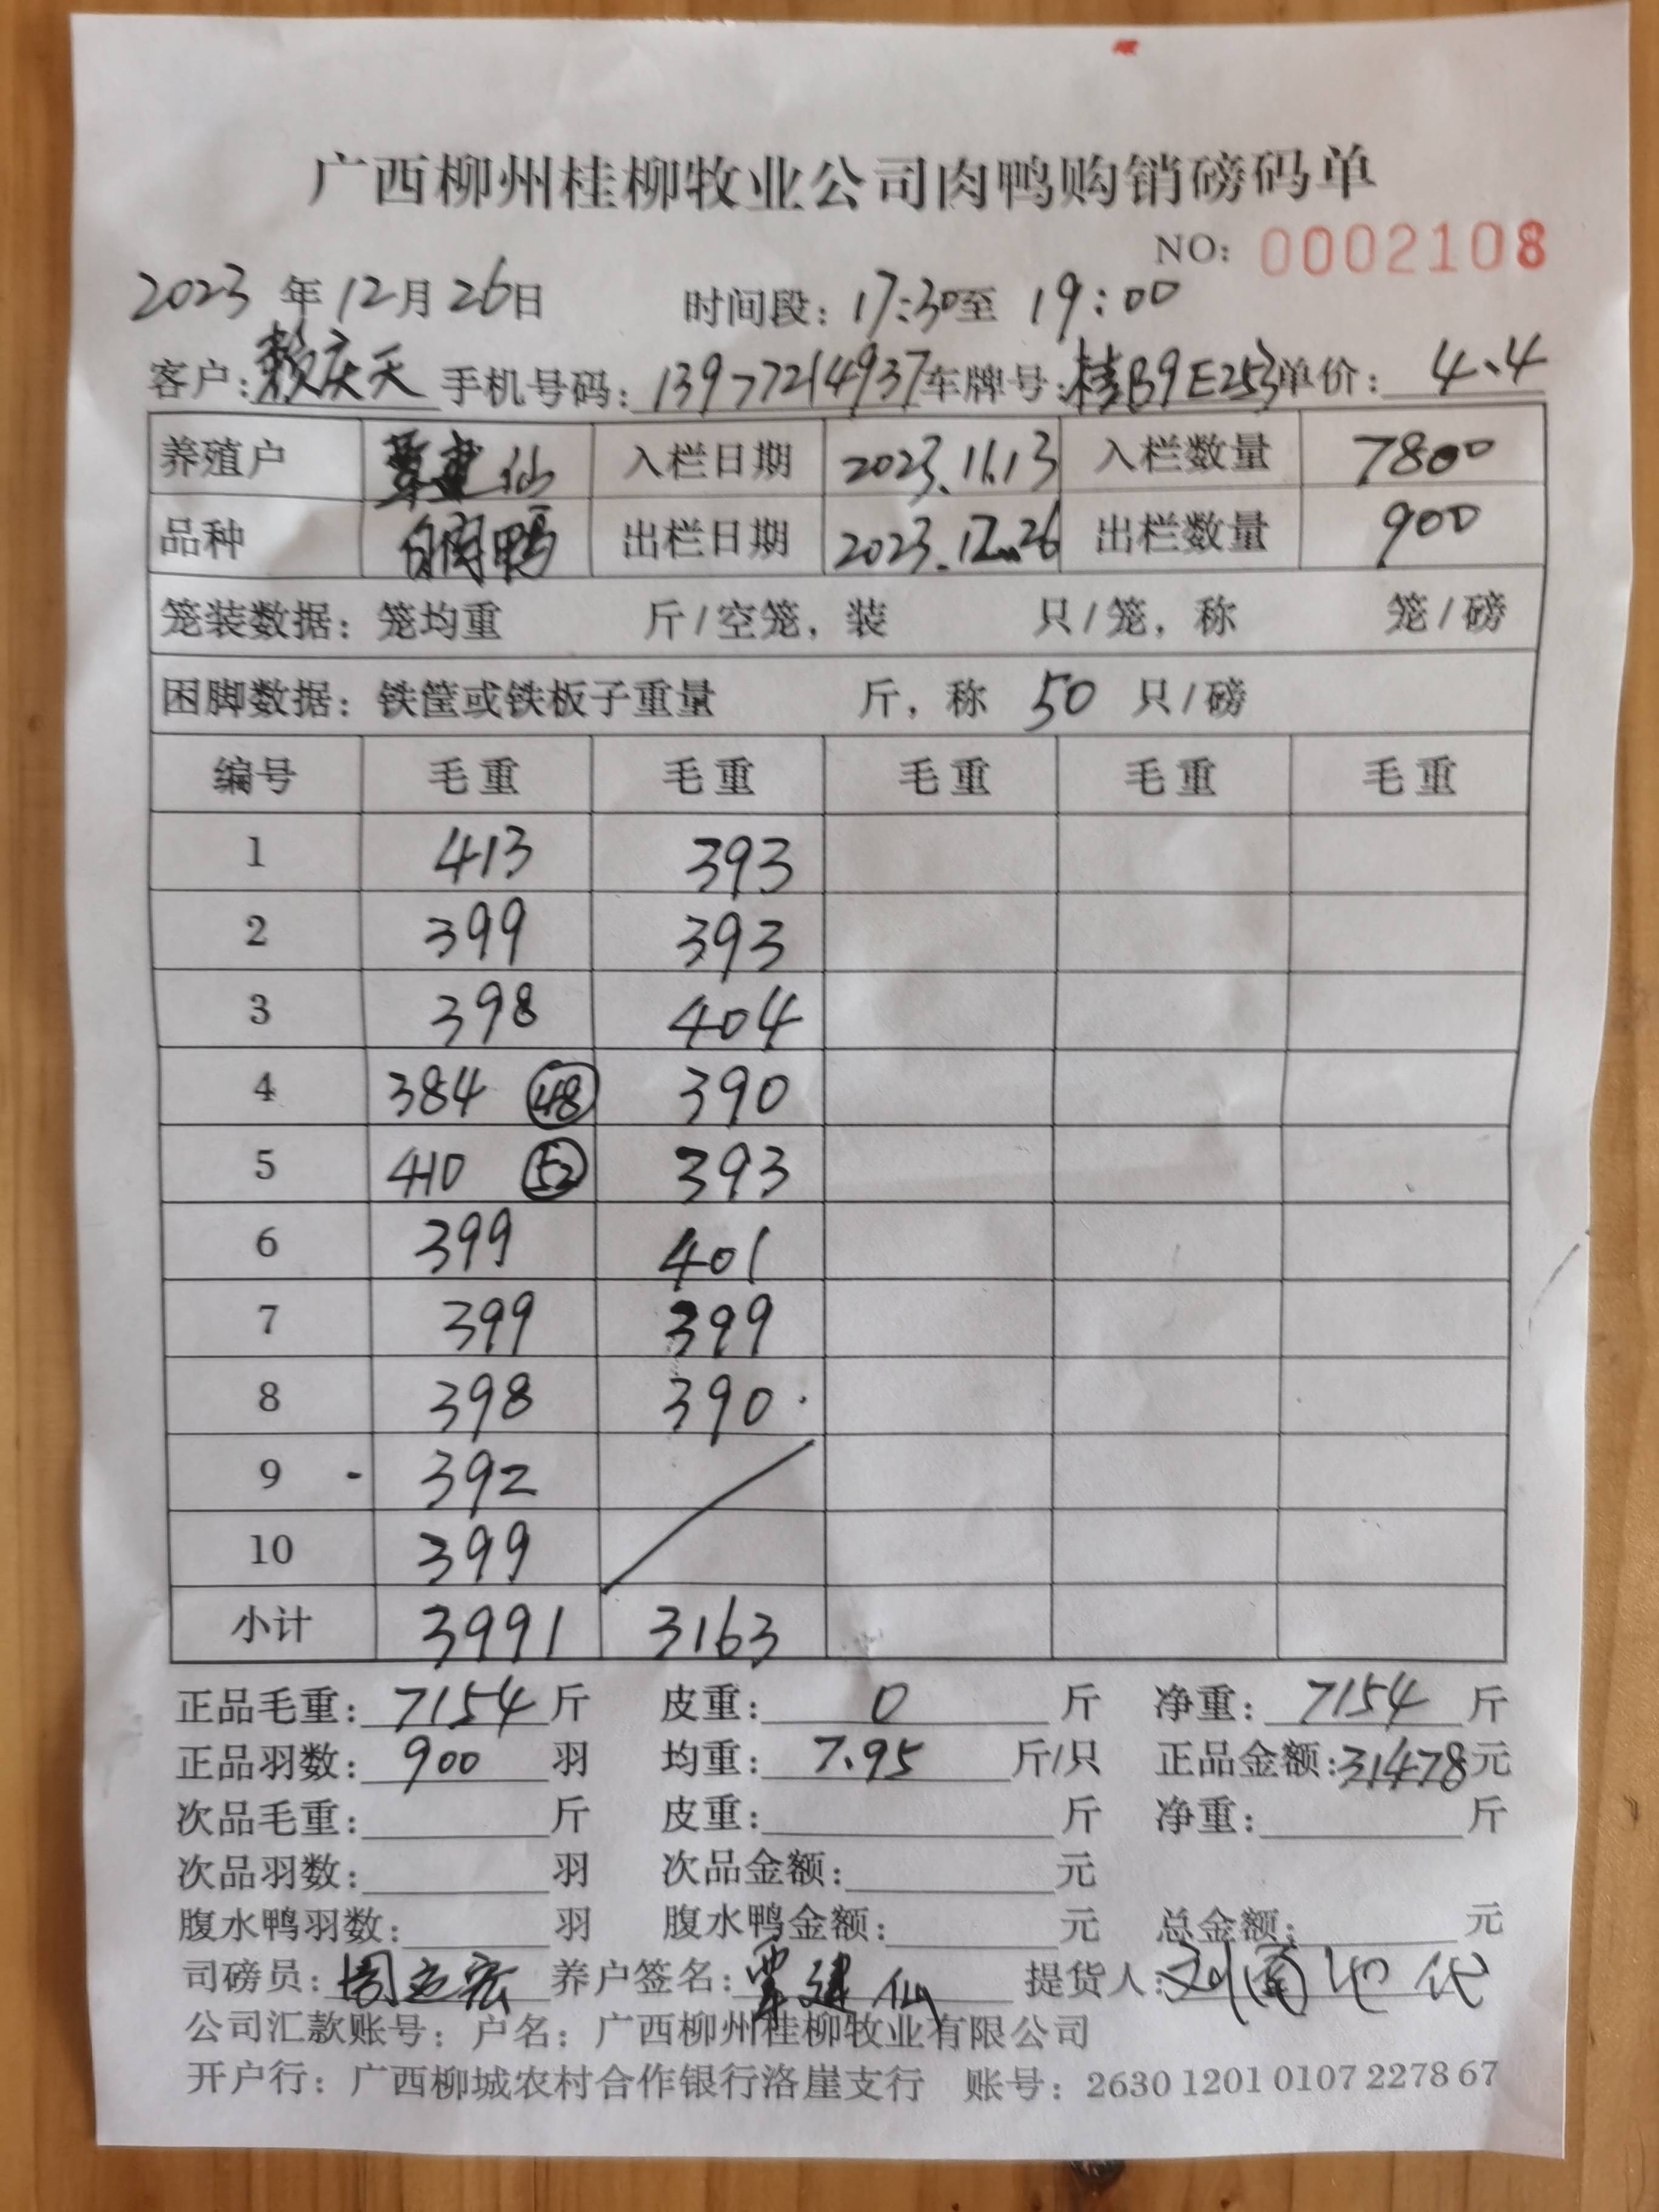 广西柳州桂柳牧业公司肉鸭购销磅码单
NO: 0002108
2023 年 12 月 26 日 时间段: 17:30 至 19:00
客户: 赖庆天 手机号码: 13977214937 车牌号: 桂B9E253 单价: 4.4
养殖户 覃建仙 入栏日期 2023.11.13 入栏数量 7800
品种 白 鸭 出栏日期 2023.12.26 出栏数量 900
笼装数据: 笼均重 斤/空笼, 装 只/笼, 称 笼/磅
困脚数据: 铁筐或铁板子重量 斤, 称 50 只/磅
编号 毛重 毛重 毛重 毛重 毛重
1 413 393
2 399 393
3 398 404
4 384 48 390
5 410 52 393
6 399 401
7 399 399
8 398 390
9 392
10 399
小计 3991 3163
正品毛重: 7154 斤 皮重: 0 斤 净重: 7154 斤
正品羽数: 900 羽 均重: 7.95 斤/只 正品金额: 31478 元
次品毛重: 斤 皮重: 斤 净重: 斤
次品羽数: 羽 次品金额: 元
腹水鸭羽数: 羽 腹水鸭金额: 元 总金额: 元
司磅员: 周 宏 养户签名: 覃建仙 提货人: 刘 代
公司汇款账号: 户名: 广西柳州桂柳牧业有限公司
开户行: 广西柳城农村合作银行洛崖支行 账号: 2630 1201 0107 2278 67